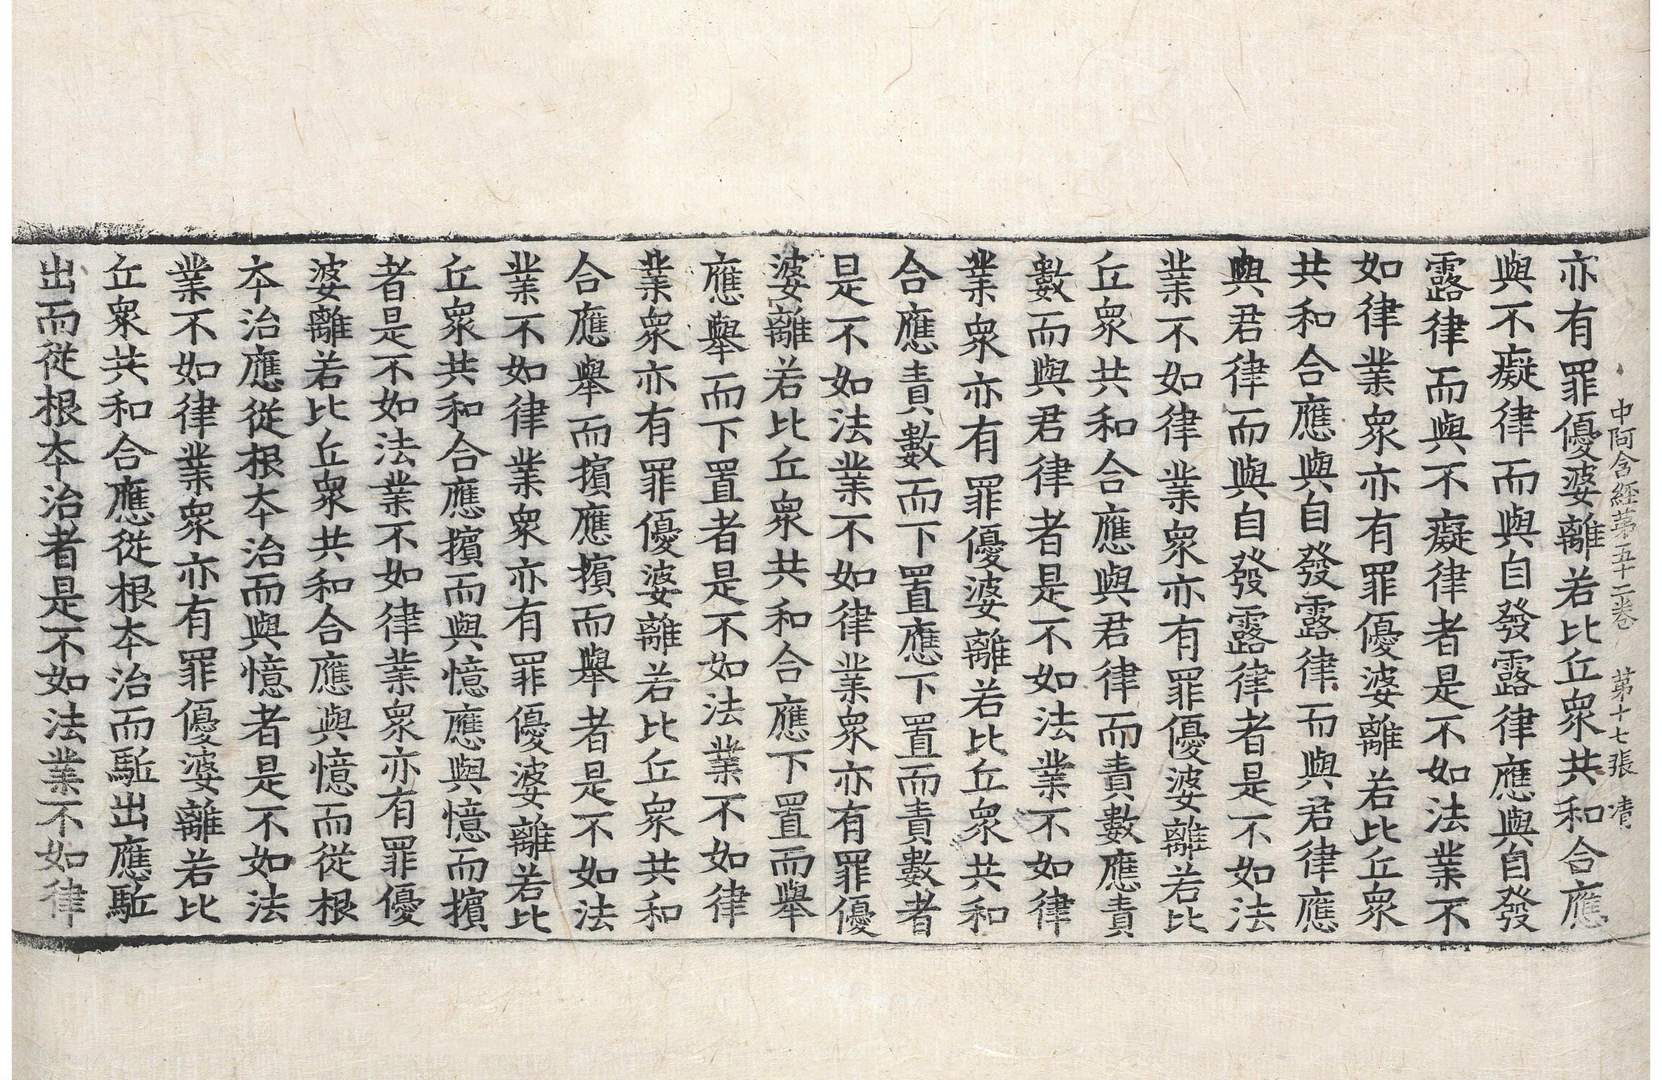 中阿含經第五十二卷 第十七張 清
亦有罪優婆離若比丘衆共和合應
與不癡律而與自發露律應與自發
露律而與不癡律者是不如法業不
如律業衆亦有罪優婆離若比丘衆
共和合應與自發露律而與君律應
與君律而與自發露律者是不如法
業不如律業衆亦有罪優婆離若比
丘衆共和合應與君律而責數應責
數而與君律者是不如法業不如律
業衆亦有罪優婆離若比丘衆共和
合應責數而下置應下置而責數者
是不如法業不如律業衆亦有罪優
婆離若比丘衆共和合應下置而舉
應舉而下置者是不如法業不如律
業衆亦有罪優婆離若比丘衆共和
合應舉而擯應擯而舉者是不如法
業不如律業衆亦有罪優婆離若比
丘衆共和合應擯而與憶應與憶而擯
者是不如法業不如律業衆亦有罪優
婆離若比丘衆共和合應與憶而從根
本治應從根本治而與憶者是不如法
業不如律業衆亦有罪優婆離若比
丘衆共和合應從根本治而駈出應駈
出而從根本治者是不如法業不如律